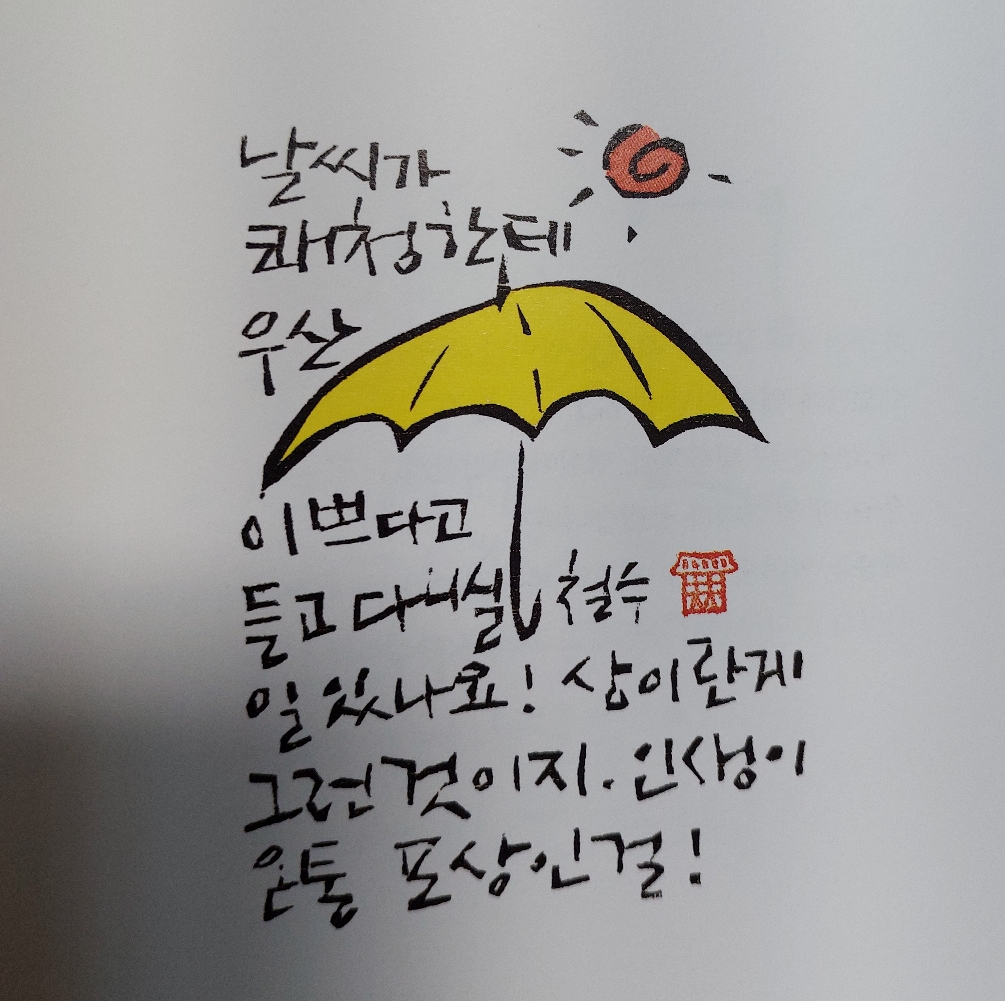 날씨가
쾌청한데
우산
이쁘다고
들고 다니실
철수
일 있나요! 상이란게
그런 것이지. 인생이
온통 포상인걸!